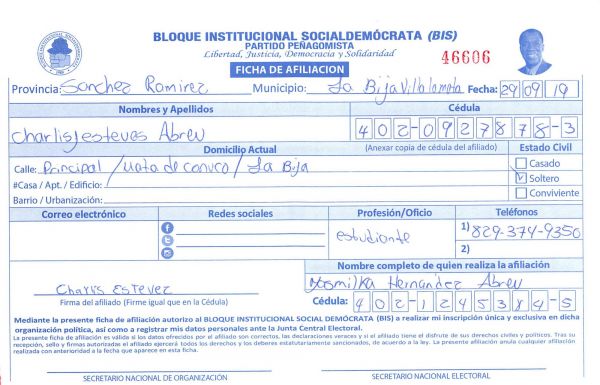 BLOQUE INSTITUCIONAL SOCIALDEMÓCRATA (BIS)
PARTIDO PEÑAGOMISTA
Libertad, Justicia, Democracia y Solidaridad
46606
FICHA DE AFILIACION
Provincia: Sanchez Ramirez Municipio: La Bija Villa la mata Fecha: 29 09 19
Nombres y Apellidos Cédula
Charlis esteves Abreu 402-0927878-3
Domicilio Actual (Anexar copia de cédula del afiliado) Estado Civil
Calle: Principal / Mata de canuco / La Bija Casado
#Casa / Apt. / Edificio: Soltero
Barrio / Urbanización: Conviviente
Correo electrónico Redes sociales Profesión/Oficio Teléfonos
estudiante 1) 829-374-9350
2)
Nombre completo de quien realiza la afiliación
Charlis Estevez Hernandez Abreu
Firma del afiliado (Firme igual que en la Cédula) Cédula: 402-1245384-5
Mediante la presente ficha de afiliación autorizo al BLOQUE INSTITUCIONAL SOCIAL DEMÓCRATA (BIS) a realizar mi inscripción única y exclusiva en dicha
organización política, así como a registrar mis datos personales ante la Junta Central Electoral.
La presente ficha de afiliación es válida si los datos ofrecidos por el afiliado son correctos, las declaraciones veraces y si el titular tiene el disfrute de sus derechos civiles y políticos. Tras su
recepción, sello y firmas autorizadas el afiliado ejercerá todos los derechos y los deberes estatutariamente sancionados, de acuerdo a la ley. La presente afiliación anula cualquier afiliación
realizada con anterioridad a la fecha que aparece en esta ficha.
SECRETARIO NACIONAL DE ORGANIZACIÓN SECRETARIO NACIONAL ELECTORAL